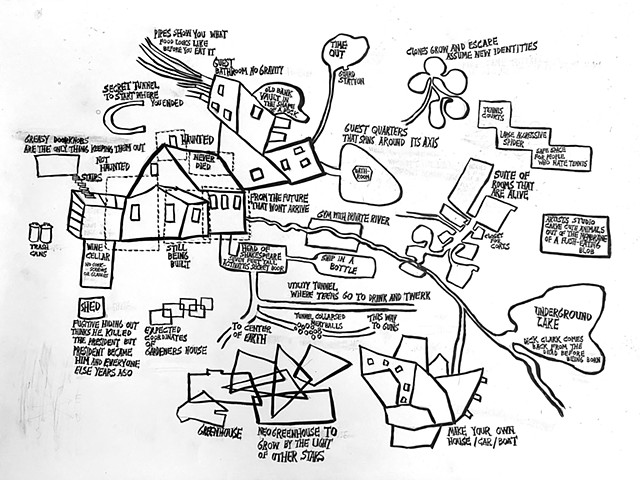 PIPES SHOW YOU WHAT
FOOD LOOKS LIKE
BEFORE YOU EAT IT
TIME
OUT
GUARD
STATION
CLONES GROW AND ESCAPE
ASSUME NEW IDENTITIES
GUEST
BATHROOM NO GRAVITY
SECRET TUNNEL
TO START WHERE
YOU ENDED
OLD BANK
VAULT IN
THE SHAPE
OF A
TENNIS
COURTS
LARGE AGGRESSIVE
SPIDER
SAFE SPACE
FOR PEOPLE
WHO HATE TENNIS
GREASY DOORKNOBS
ARE THE ONLY THING KEEPING THEM OUT
HAUNTED
NOT
HAUNTED
NEVER
DIED
STAIRS
GUEST QUARTERS
THAT SPINS AROUND ITS AXIS
BATH-
ROOM
SUITE OF
ROOMS THAT
ARE ALIVE
FROM THE FUTURE
THAT WONT ARRIVE
GYM WITH PRIVATE RIVER
CLOSET
FOR
ARTISTS STUDIO
CARVE OWN ANIMALS
OUT OF THE MEMBRANE
OF A FLESH-EATING
BLOB
TRASH
CANS
WINE
CELLAR
NO CORK-
SCREWS
OR GLASSES
STILL
BEING
BUILT
HEAD OF
SHAKESPEARE
ACTIVATES SECRET DOOR
SHIP IN A
BOTTLE
UTILITY TUNNEL
WHERE TEENS GO TO DRINK AND TWERK
SHED
FUGITIVE HIDING OUT
THINKS HE KILLED
THE PRESIDENT BUT
PRESIDENT BECAME
HIM AND EVERYONE
ELSE YEARS AGO
EXPECTED
COORDINATES
OF
GARDENERS HOUSE
TO CENTER
OF
EARTH
TUNNEL COLLAPSED
MEATBALLS
THIS WAY
TO GUNS
UNDERGROUND
LAKE
DICK CLARK COMES
BACK FROM THE
DEAD BEFORE
BEING BORN
GREENHOUSE
NEOGREENHOUSE TO
GROW BY THE LIGHT
OF OTHER STARS
MAKE YOUR OWN
HOUSE/CAR/BOAT